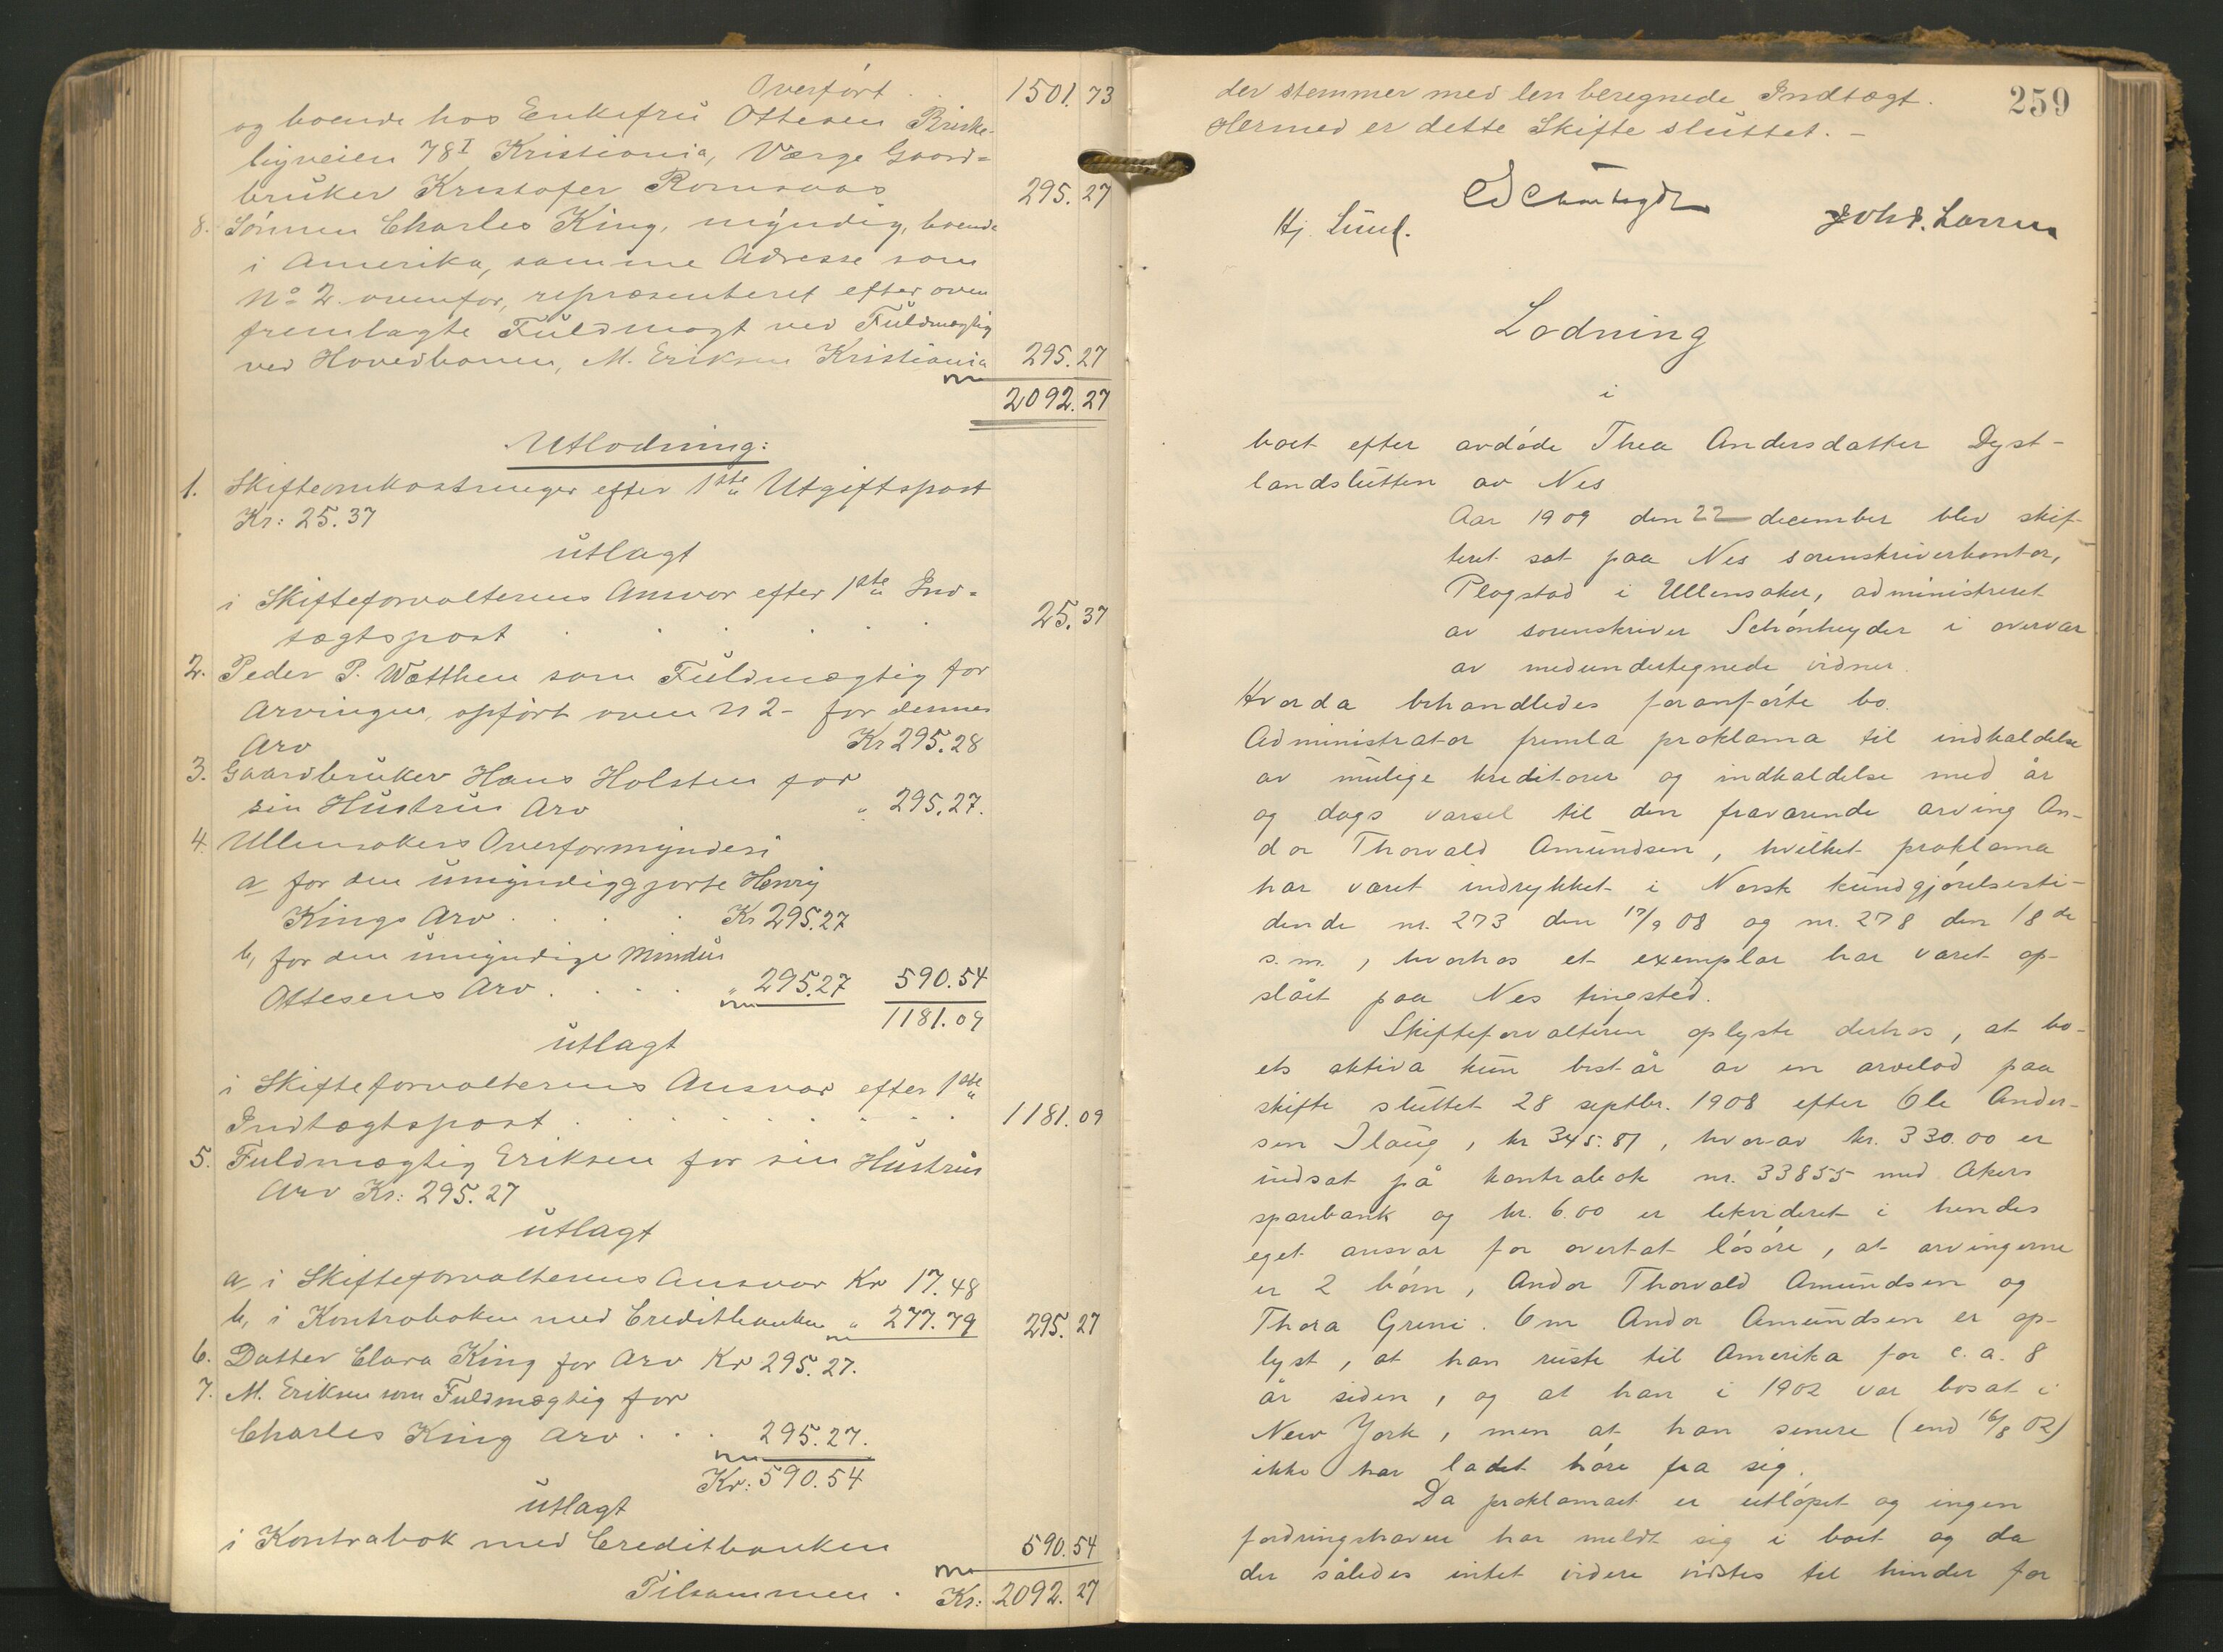 Overført . 1501.73
og boende hos Enkefru Ottesen Briske-
byveien 78 I Kristiania, Værge Gaard=
bruker Kristofer Romsaas 295.27
8. Sønnen Charles King, myndig, boende
i Amerika, samme Adresse som
No 2 ovenfor, repræsenteret efter oven
fremlagte Fuldmagt ved Fuldmægtig
ved Hovedbanen, M. Eriksen Kristiania 295.27
2092.27
Utlodning:
1. Skifteomkostninger efter 1ste Utgiftspost
Kr: 25.37
utlagt
i Skifteforvalterens Ansvar efter 1ste Ind-
tægtspost . . . . . 25.37
2. Peder P. Watthen som Fuldmægtig for
Arvingen, opført oven n 2- for dennes
Arv Kr 295.28
3. Gaardbruker Hans Holsten for
sin Hustrus Arv " 295.27.
4. Ullensakers Overformynderi
a for den umyndiggjorte Henry
Kings Arv . . . . Kr 295.27
b, for den umyndige Mindus
Ottesens Arv . . . . " 295.27 590.54
1181.09
utlagt
i Skifteforvalterens Ansvar efter 1ste
Indtægtspost . . . . . . . 1181.09
5. Fuldmægtig Eriksen for sin Hustrus
Arv Kr: 295.27
utlagt
a, i Skifteforvalterens Ansvar Kr 17.48
b, i Kontraboken med Creditbanken " 277.79 295.27
6. Datter Clara King for Arv Kr 295.27.
7. M. Eriksen som Fuldmægtig for
Charles King Arv . . . 295.27.
Kr: 590.54
utlagt
i Kontrabok med Creditbanken 590.54
Tilsammen . Kr: 2092.27
259
der stemmer med den beregnede Indtægt.
Hermed er dette Skifte sluttet. -
Schønheyder
Hj. Lund. Joh. P. Larsen
Lodning
i
boet efter avdøde Thea Andersdatter Dyst-
landslutten av Nes
Aar 1909 den 22 december blev skif-
teret sat paa Nes sorenskriverkontor,
Plogstad i Ullensaker, administreret
av sorenskriver Schønheyder i overvær
av medundertegnede vidner.
Hvorda behandledes foranførte bo.
Administrator fremla proklama til indkaldelse
av mulige kreditorer og indkaldelse med år
og dags varsel til den fraværende arving An-
dor Thorvald Amundsen, hvilket proklama
har været indrykket i Norsk kundgjørelsesti-
dende nr. 273 den 17/9 08 og nr. 278 den 18de
s.m., hvorhos et exemplar har været op-
slåt paa Nes tingsted.
Skifteforvalteren oplyste derhos, at bo-
ets aktiva kun består av en arvelod paa
skifte sluttet 28 septbr. 1908 efter Ole Ander-
sen Ilaug, kr 345.87, hvorav kr. 330.00 er
indsat på kontrabok nr. 33855 med Akers
sparebank og kr. 6.00 er likvideret i hendes
eget ansvar for overtat løsøre, at arvingerne
er 2 børn, Andor Thorvald Amundsen og
Thora Greni. Om Andor Amundsen er op-
lyst, at han reiste til Amerika for c.a. 8
år siden, og at han i 1902 var bosat i
New York, men at han senere (end 16/8 02)
ikke har ladet høre fra sig.
Da proklamaet er utløpet og ingen
fordringshaver har meldt sig i boet og da
der således intet videre vidstes til hinder for